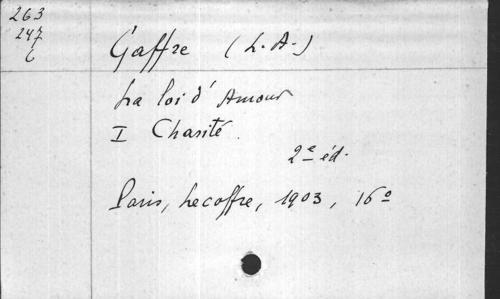 263
247
C
Gaffre (L. A.)
La loi d'Amour
I Charité.
2e éd.
Paris, Lecoffre, 1903, 16º